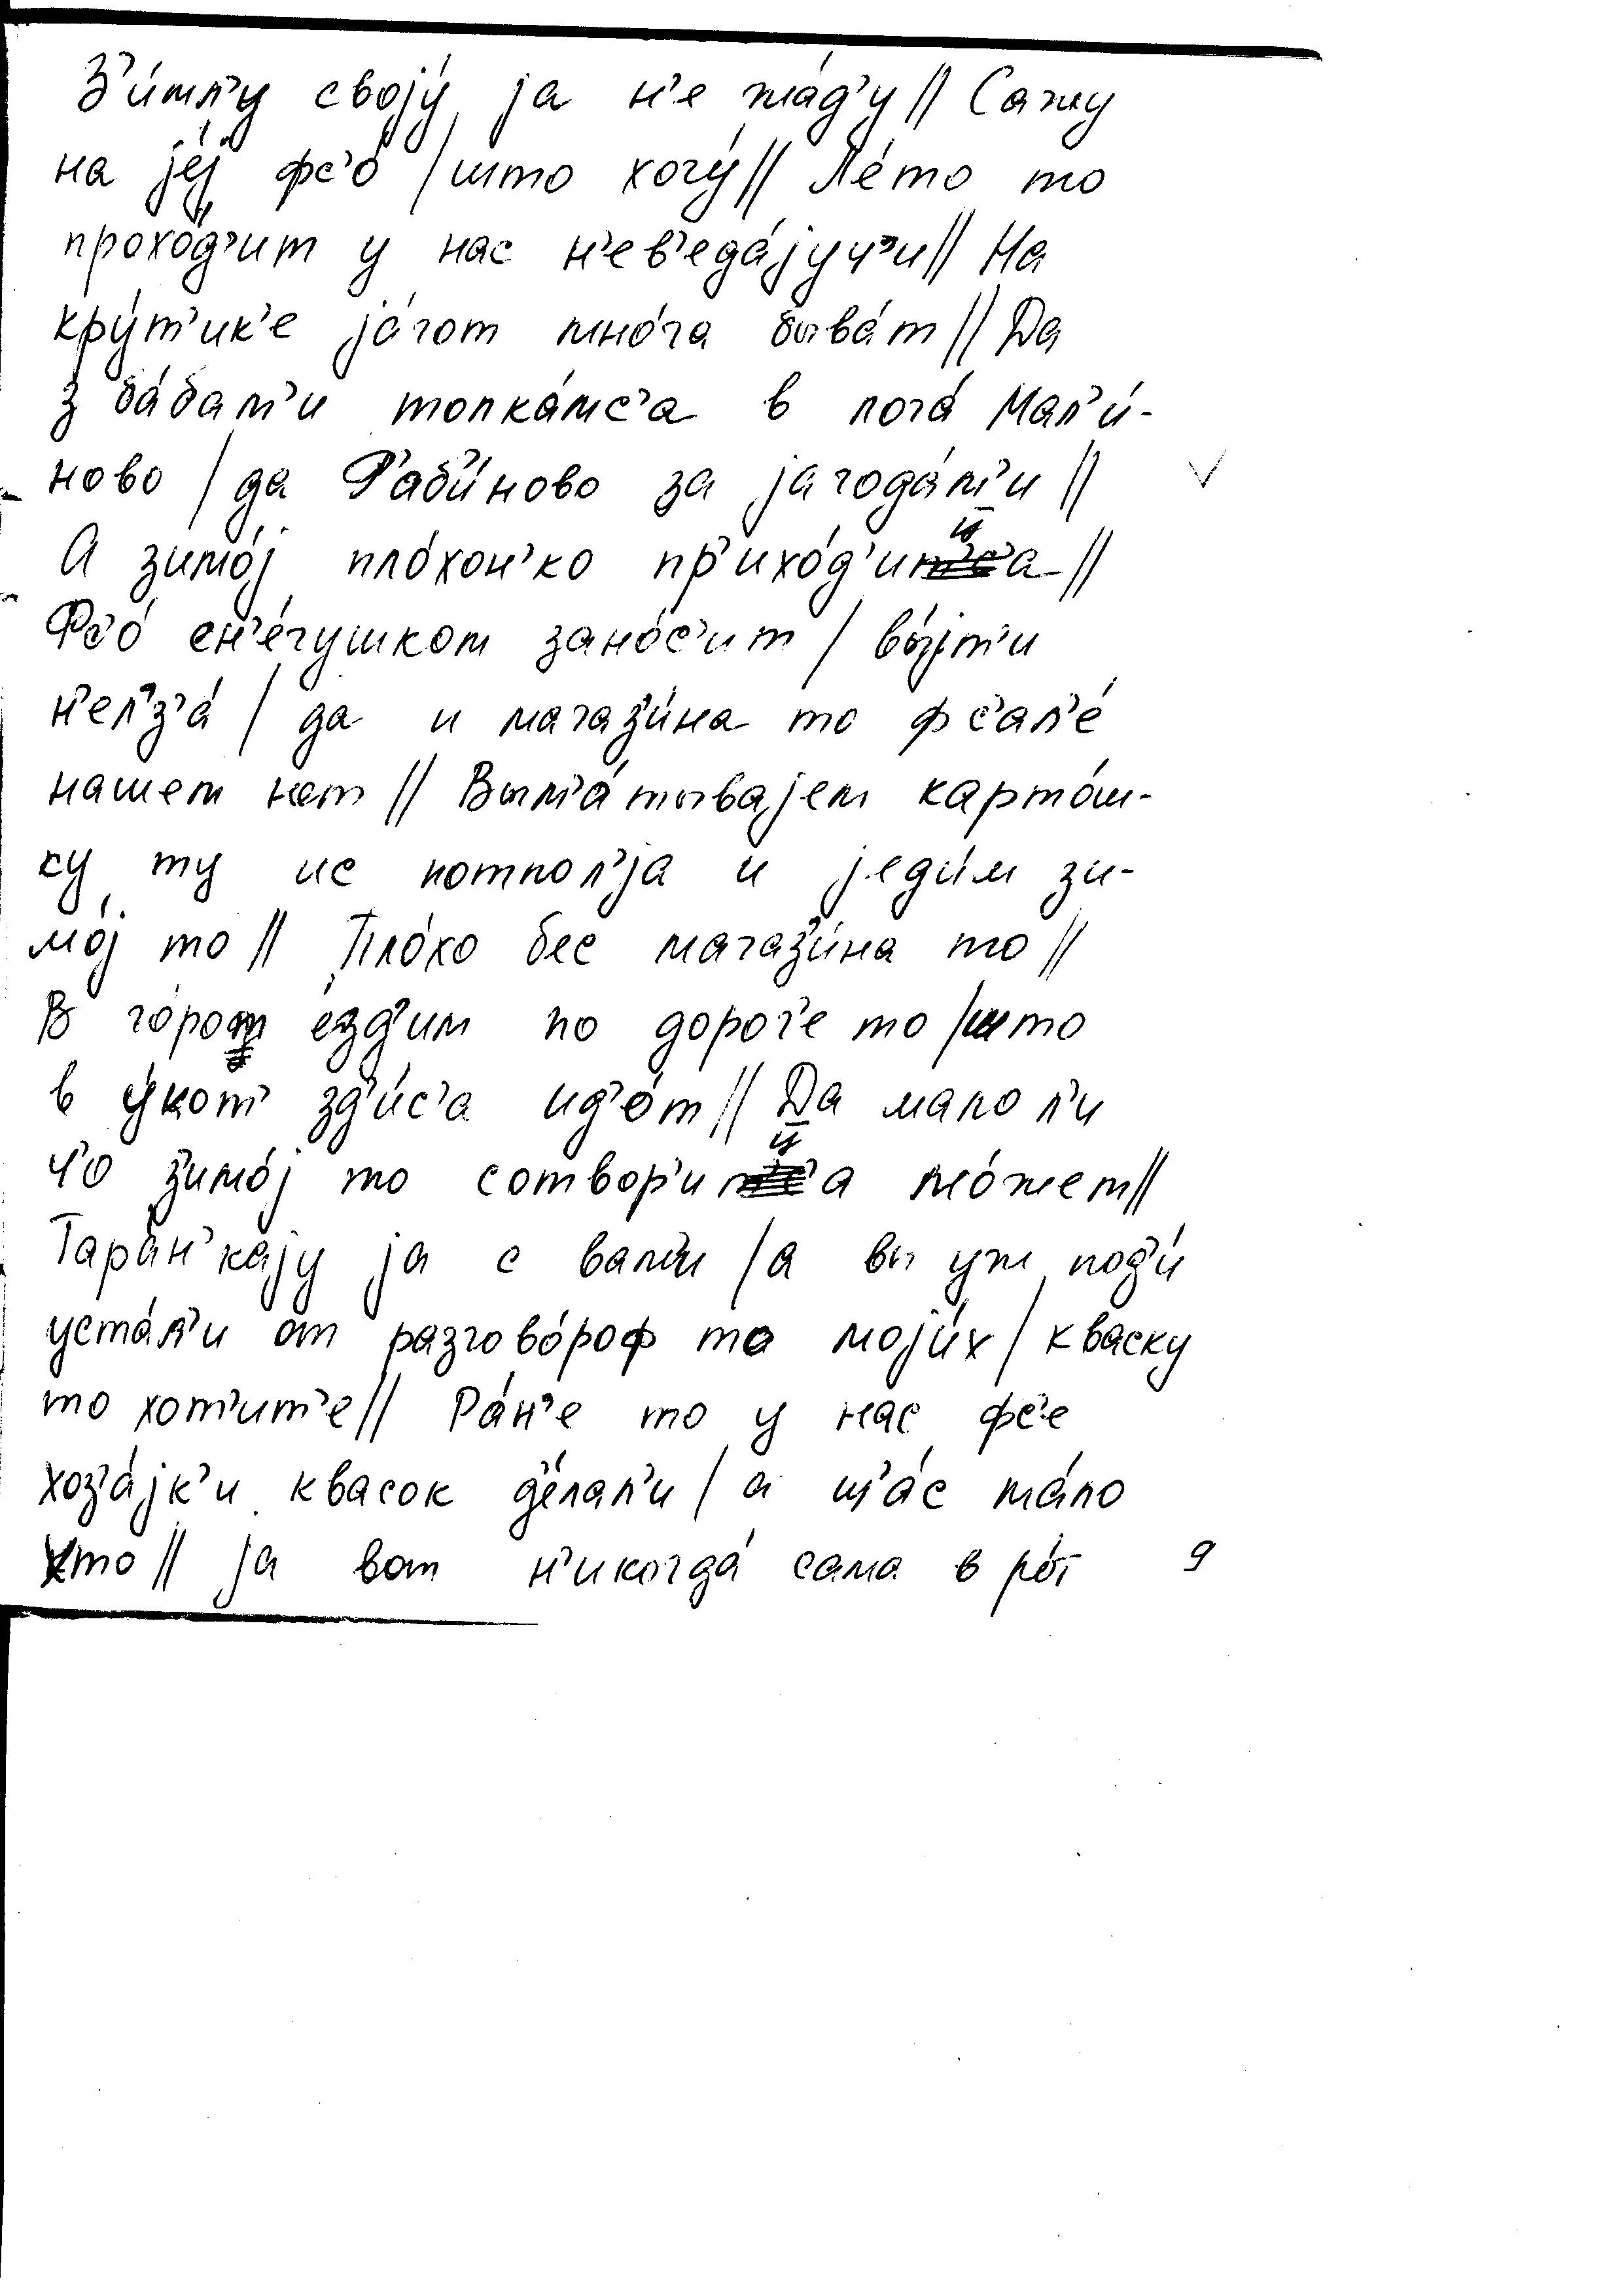 З'и́мл'у своју́ ја н'е жа́д'у // Сажу
на је́ј фс'о́ / што хочу́ // Ле́то то
прохо́д'ит у нас н'ев'еда́јуч'и // На
кру́т'ик'е ја́гот мно́га быва́т // Да
з ба́бам'и толка́мс'а в лога́ Мал'и́-
ново / да Р'аб'и́ново за јагода́м'и //
А зимо́ј пло́хон'ко пр'ихо́д'ица //
Фс'о́ сн'е́гушком зано́с'ит / вы́јт'и
н'ел'з'а́ / да и магаз'и́на то ф с'ал'е́
нашем нет // Вым'а́тывајем карто́ш-
ку ту ис потпол'ја и једи́м зи-
мо́ј то // Пло́хо бес магаз'и́на то //
В го́рот е́зд'им по дорог'е то / што
в у́кот зд'и́с'а ид'о́т // Да мало л'и
ч'о з'имо́ј то сотвор'ица мо́жет //
Тара́н'кају ја с вам'и / а вы уж под'и́
уста́л'и от разгово́роф то моји́х / кваску
то хот'ит'е // Ра́н'е то у нас фс'е
хоз'а́јк'и квасок д'е́лал'и / а щ'а́с ма́ло
кто // ја вот н'икогда́ сама в ро́т
9